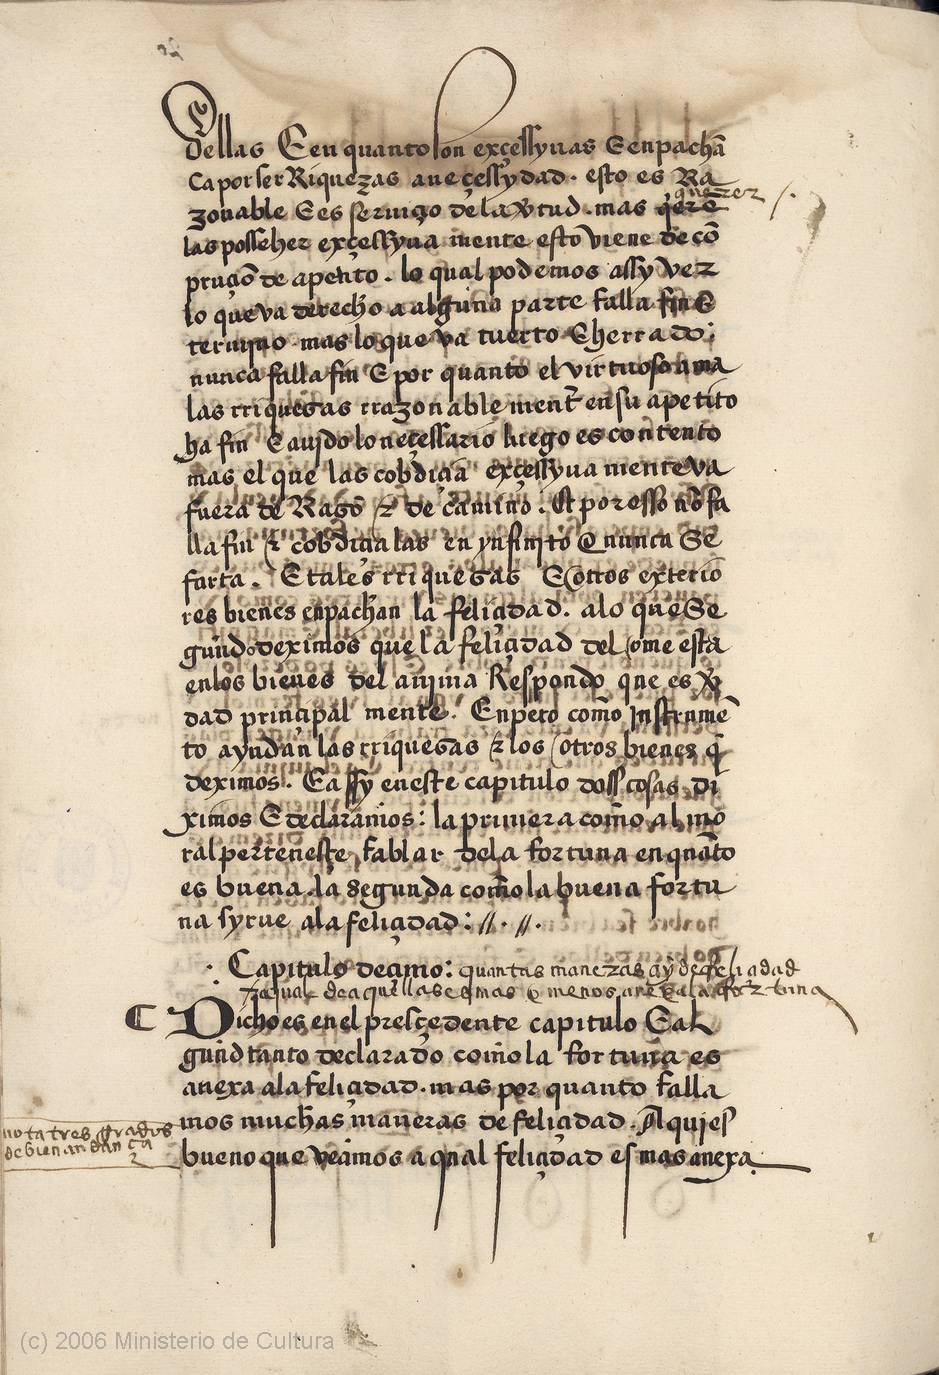 dellas E en quanto son exçessyuas Se enpachā
Ca por ser Riquezas a neçessydad . esto es Ra
zonable E es seruiçio de la v̄tud . mas q̄rer
querer
las posseher exçessyua mente esto viene de cō
pruçiō de apetito . lo qual podemos assy ver
lo que va derecho a alguna parte falla fin E
termjno . mas lo que va tuerto E herrado :
nunca falla fin E por quanto el virtuoso ama
las rriquezas rrazonable ment̄ en su apetito
ha fin E auido lo neçessario luego es contento
mas el que las cobdiçia exçessyua mente va
fuera de Razō & de camino : Et por esso nō fa
lla fin & cobdiçia las en ynfinito E nunca Se
farta . E tales rriquezas E otros exterio
res bienes enpachan la feliçidad . a lo que Se
gund deximos que la feliçidad del ome esta
en los bienes del anjma Respondo que es v̄
dad prinçipal mente . Enpero com̄o jnstrumē
to ayudan las rriquezas & los otros bienes q̄
deximos . E assy en este capitulo doss cosas di
ximos E declaramos : la primera com̄o al mo
ral perteneste fablar de la fortuna en quāto
es buena . la segunda com̄o la buena fortu
na syrue a la feliçidad : // . // .
. Capitulo deçimo : quantas maneras ay de feliçidad
& qual de aquellas es mas o menos anexa a la fortuna
Dicho es en el presçedente capitulo E al
gund tanto declarado com̄o la fortuna es
anexa a la feliçidad . mas por quanto falla
mos muchas maneras de feliçidad . Aqui es
bueno que veamos a qual feliçidad es mas anexa
nota tres grados
de bien andança
(c) 2006 Ministerio de Cultura